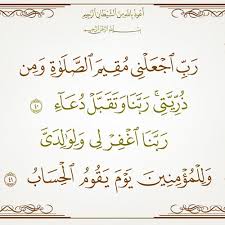 أعوذ بالله من الشيطان الرجيم
بسم الله الرحمن الرحيم
رَبِّ ٱجْعَلْنِى مُقِيمَ ٱلصَّلَوٰةِ وَمِن
ذُرِّيَّتِى ۚ رَبَّنَا وَتَقَبَّلْ دُعَآءِ ٤٠
رَبَّنَا ٱغْفِرْ لِى وَلِوَٰلِدَىَّ
وَلِلْمُؤْمِنِينَ يَوْمَ يَقُومُ ٱلْحِسَابُ ٤١